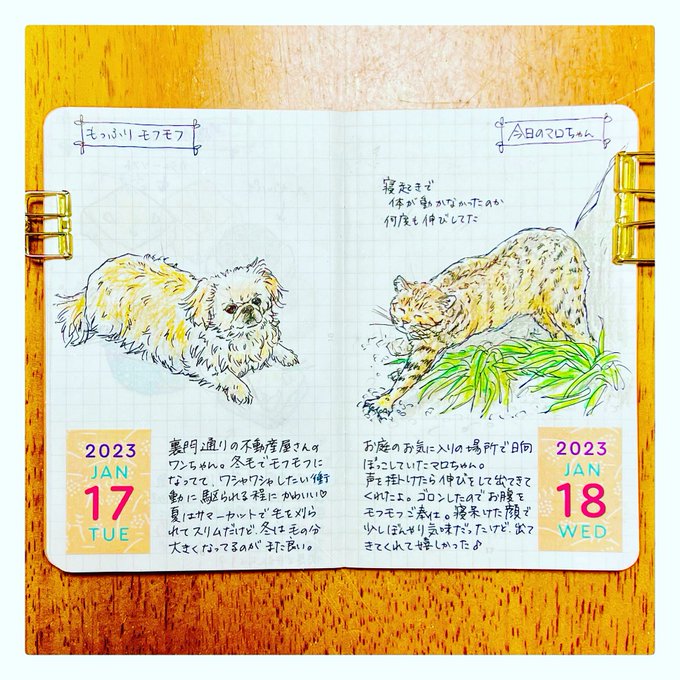 もっふり モフモフ
2023
JAN
17
TUE
裏門通りの不動産屋さんの
ワンちゃん。冬毛でモフモフに
なってて、ワシャワシャしたい衝
動に駆られる程にかわいい♡
夏はサマーカットで毛を刈ら
れてスリムだけど、冬は毛の分
大きくなってるのがまた良い。
今日のマロちゃん
寝起きで
体が動かなかったのか
何度も伸びしてた
お庭のお気に入りの場所で日向
ぼっこしていたマロちゃん。
声を掛けたら伸びをして出てきて
くれたよ。ゴロンしたのでお腹を
モフモフご奉仕。寝呆けた顔で
少しぼんやり気味だったけど、出て
きてくれて嬉しかった♪
2023
JAN
18
WED